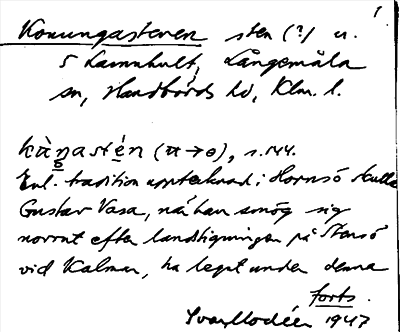 1.
Konungastenen sten (?) n.
S Lammhult, Långemåla
sn, Handbörds hd, Klm. l.
kàŋastén (a→o), s. 144.
Enl. tradition upptecknad i Hornsö skulle
Gustav Vasa, nä han smög sig
norrut efter landstigningen på Stensö
vid Kalmar, ha legat under denna
forts.
1947